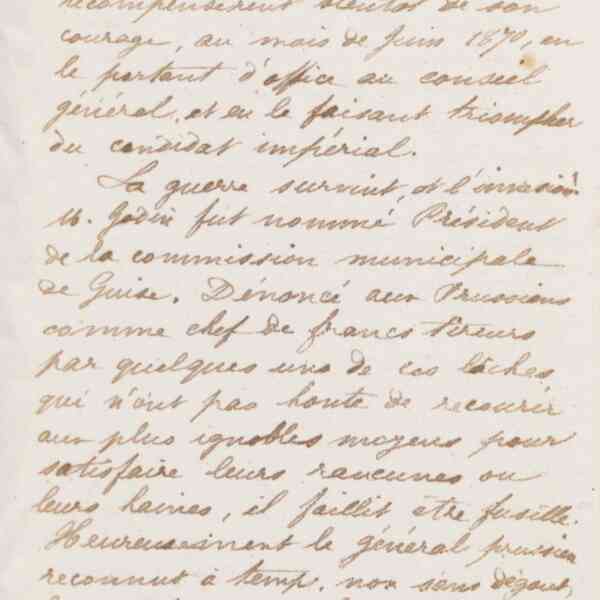 récompensèrent bientôt de son
courage, au mois de Juin 1870, en
le portant d'office au conseil
général, et en le faisant triompher
du candidat impérial.
La guerre survint, et l'invasion.
M. Godin fut nommé Président
de la commission municipale
de Guise. Dénoncé aux Prussiens
comme chef de francs tireurs
par quelques uns de ces lâches
qui n'ont pas honte de recourir
aux plus ignobles moyens pour
satisfaire leurs rancunes ou
leurs haines, il faillit être fusillé.
Heureusement le général prussien
reconnut à temp. non sans dégout,